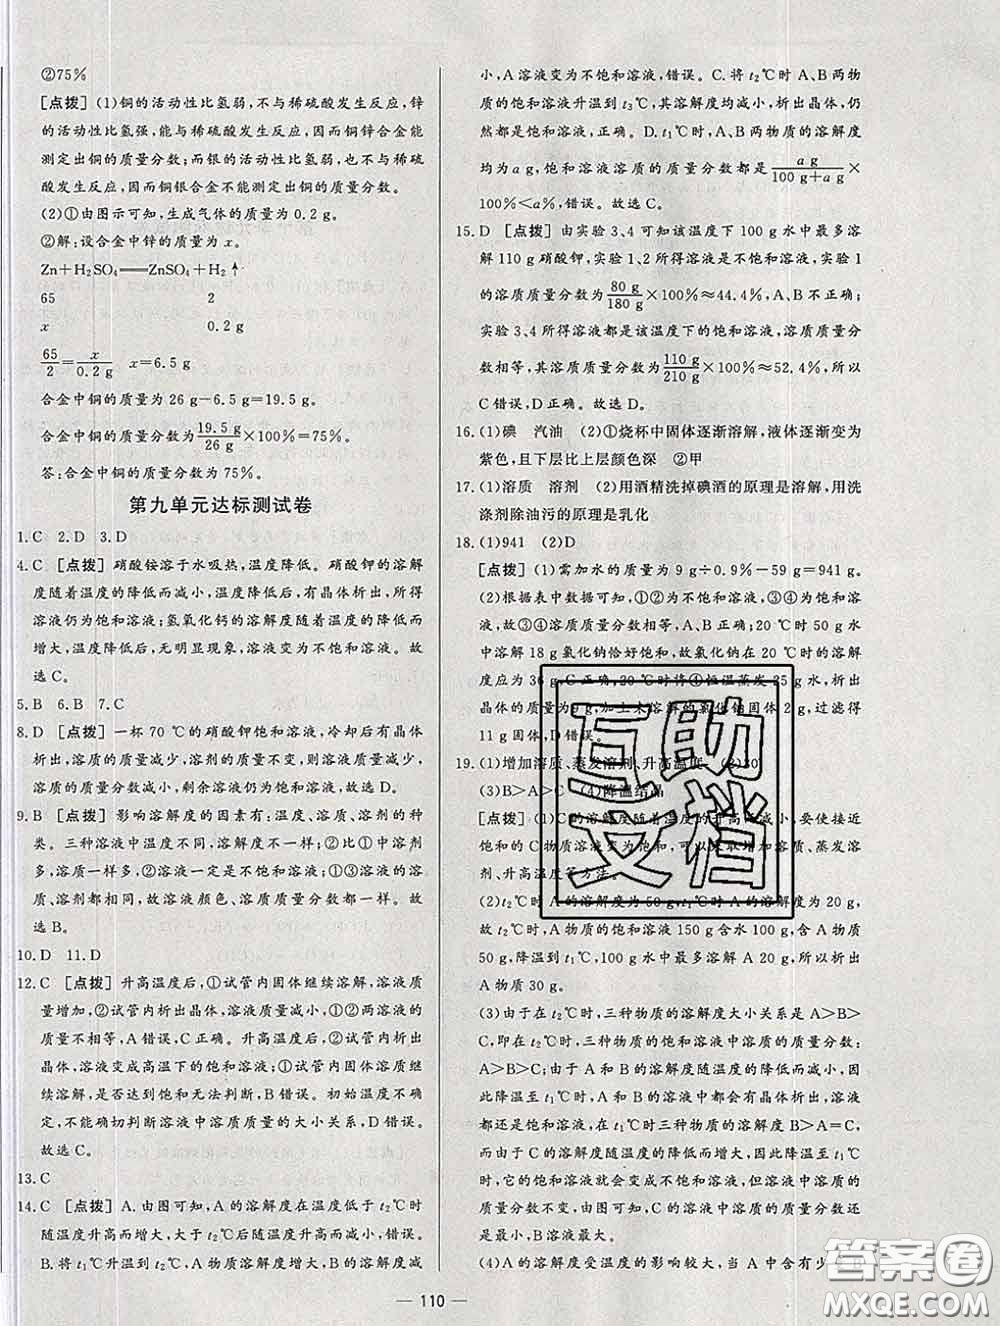 ②75%
[点拨] (1)铜的活动性比氢弱,不与稀硫酸发生反应,锌
的活动性比氢强,能与稀硫酸发生反应,因而铜锌合金能
测定出铜的质量分数;而银的活动性比氢弱,也不与稀硫
酸发生反应,因而铜银合金不能测定出铜的质量分数。
(2)①由图示可知,生成气体的质量为 0.2 g。
②解:设合金中锌的质量为 x。
Zn+H₂SO₄══ZnSO₄+H₂↑
65 2
x 0.2 g
65/2=x/0.2 g x=6.5 g
合金中铜的质量为 26 g-6.5 g=19.5 g
合金中铜的质量分数为 19.5 g/26 g×100%=75%。
答:合金中铜的质量分数为 75%。
第九单元达标测试卷
1.C 2.D 3.D
4.C [点拨] 硝酸铵溶于水吸热,温度降低。硝酸钾的溶解
度随着温度的降低而减小,温度降低后,有晶体析出,所得
溶液仍为饱和溶液;氢氧化钙的溶解度随着温度的降低而
增大,温度降低后,无明显现象,溶液变为不饱和溶液。
故选 C。
5.B 6.B 7.C
8.D [点拨] 一杯 70 ℃的硝酸钾饱和溶液,冷却后有晶体
析出,溶质的质量减少,溶剂的质量不变,则溶液质量减
小,溶质质量分数减小,剩余溶液仍为饱和溶液。故选 D。
9.B [点拨] 影响溶解度的因素有:温度、溶质、溶剂的种
类。三种溶液中温度不同,溶解度不一样;②比①中溶剂
多,溶质一样多,②溶液一定是不饱和溶液;①③溶液的溶
质、溶剂都相同,故溶液颜色、溶质质量分数都一样。故
选 B。
10.D 11.D
12.C [点拨] 升高温度后,①试管内固体继续溶解,溶液质
量增大,②试管内析出晶体,溶液质量减小,①②两溶液的
质量不相等,A 错误,C 正确。升高温度后,②试管内析出
晶体,溶液变成高温下的饱和溶液;①试管内固体溶质继
续溶解,是否达到饱和无法判断,B 错误。初始温度不确
定,不能确切判断溶液中溶质质量的大小关系,D 错误。
故选 C。
13.C
14.C [点拨] A.由图可知,A 的溶解度在温度低于 t₂℃时
随温度升高而增大,大于 t₂℃后随温度升高而减小,错误。
B.将 t₁℃时 A、B 的饱和溶液升温至 t₂℃,B 的溶解度减
小,A 溶液变为不饱和溶液,错误。C.将 t₂℃时 A、B 两物
质的饱和溶液升温到 t₃℃,其溶解度均减小,析出晶体,仍
然都是饱和溶液,正确。D.t₁℃时,A、B 两物质的溶解度
均为 a g,饱和溶液溶质的质量分数都是 a g/100 g+a g×
100%<a%,错误。故选 C。
15.D [点拨] 由实验 3、4 可知该温度下 100 g 水中最多溶
解 110 g 硝酸钾,实验 1、2 所得溶液是不饱和溶液,实验 1
的溶质质量分数为 80 g/180 g×100%≈44.4%,A、B 不正确;
实验 3、4 所得溶液都是该温度下的饱和溶液,溶质质量分
数相等,其溶质质量分数为 110 g/210 g×100%≈52.4%,所以
C 错误,D 正确。故选 D。
16.(1)碘 汽油 (2)①烧杯中固体逐渐溶解,液体逐渐变为
紫色,且下层比上层颜色深 ②甲
17.(1)溶质 溶剂 (2)用酒精洗掉碘酒的原理是溶解,用洗
涤剂除油污的原理是乳化
18.(1)941 (2)D
[点拨] (1)需加水的质量为 9 g÷0.9%-59 g=941 g。
(2)根据表中数据可知,①②为不饱和溶液,③④为饱和溶
液,故③④溶质质量分数相等,A、B 正确;20 ℃时 50 g 水
中溶解 18 g 氯化钠恰好饱和,故氯化钠在 20 ℃时的溶解
度应为 36 g,C 正确,20 ℃时将④恒温蒸发 25 g 水,析出
晶体的质量为 9 g,加上未溶解的氯化钠固体 2 g,过滤得
11 g 固体,D 错误。
19.(1)增加溶质、蒸发溶剂、升高温度 (2)30
(3)B>A>C (4)降温结晶
[点拨] (1)C 的溶解度随着温度的升高而减小,要使接近
饱和的 C 物质溶液变为饱和,可以采取增加溶质、蒸发溶
剂、升高温度等方法。
(2)t₂℃时 A 的溶解度为 50 g,t₁℃时 A 的溶解度为 20 g,
故 t₂℃时,A 物质的饱和溶液 150 g 含水 100 g,含 A 物质
50 g,降温到 t₁℃时,水中最多溶解 A 物质 20 g,所以析出
A 物质 30 g。
(3)由于在 t₂℃时,三种物质的溶解度大小关系是 A>B>
C,即在 t₂℃时,三种物质的饱和溶液中溶质的质量分数:
A>B>C;由于 A 和 B 的溶解度随温度的降低而减小,因
此降温至 t₁℃时,A 和 B 的溶液中都会有晶体析出,溶液
都还是饱和溶液,但在 t₁℃时三种物质的溶解度 B>A=C,
而由于 C 的溶解度随温度的降低而增大,因此降温至 t₁℃
时,它的溶液就会变成不饱和溶液,但溶液中溶质的质量
分数不变,由图可知,C 的溶液中溶质的质量分数还是
最小,B 溶液最大。
(4)A 的溶解度受温度的影响较大,当 A 中含有少量 B
— 110 —
互助
文档
答案圈
MXQE.COM